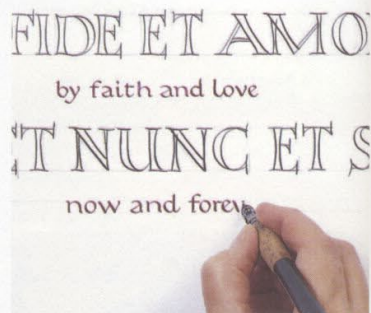 FIDE ET AMO
by faith and love
ET NUNC ET S
now and forev